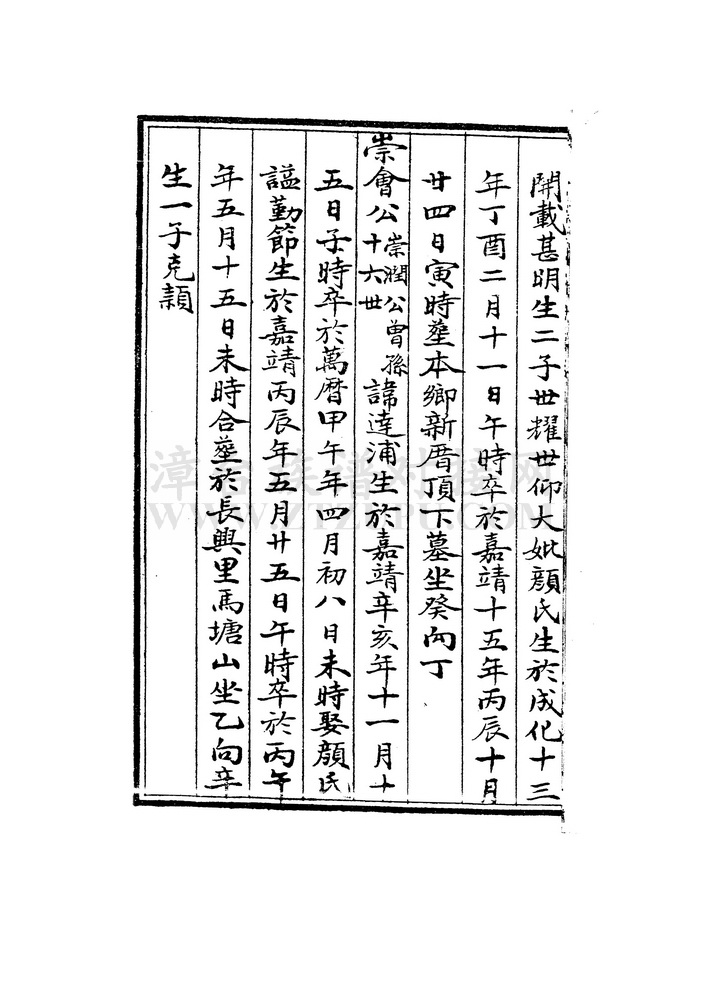 開載甚明生二子世耀世仰大妣顔氏生於成化十三
年丁酉二月十一日午時卒於嘉靖十五年丙辰十月
廿四日寅時塟本鄉新厝頂下墓坐癸向丁
崇會公十六世崇潤公曾孫諱達浦生於嘉靖辛亥年十一月十
五日子時卒於萬曆甲午年四月初八日未時娶顔氏
謚勤節生於嘉靖丙辰年五月廿五日午時卒於丙午
年五月十五日未時合塟於長興里馬塘山坐乙向辛
生一子克頴
漳台族谱对接网
WWW.ZTZUPU.COM